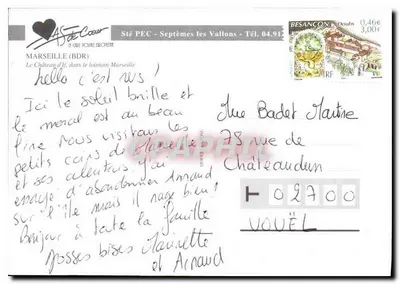 As de Cœur
MARSEILLE (BDR)
Le Château d'If, dans le lointain Marseille
Sté PEC - Septèmes les Vallons - Tél. 04.91
BESANÇON
Doubs
0,46€
3,00F
RF
hello c'est nus!
Ici le soleil brille et
le moral est au beau
fixe nous visitons les
petits coins de Marseille
et ses alentours j'ai
essayé d'abandonner Arnaud
sur l'île mais il nage bien!
Bonjour à toute la famille
Grosses bises Laurette
et Arnaud
Badet
78 rue de
Châteaudun
02700
VOUËL